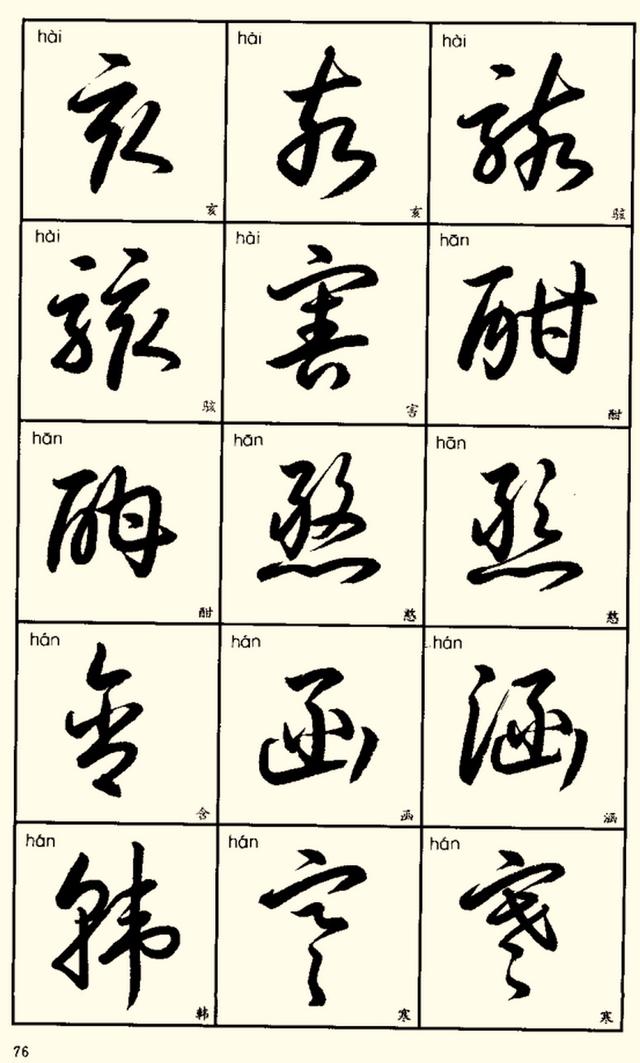 hài hài hài
亥 亥 骇
亥 亥 骇
hài hài hān
骇 害 酣
骇 害 酣
hān hān hān
酣 憨 憨
酣 憨 憨
hán hán hán
含 函 涵
含 函 涵
hán hán hán
韩 寒 寒
韩 寒 寒
76